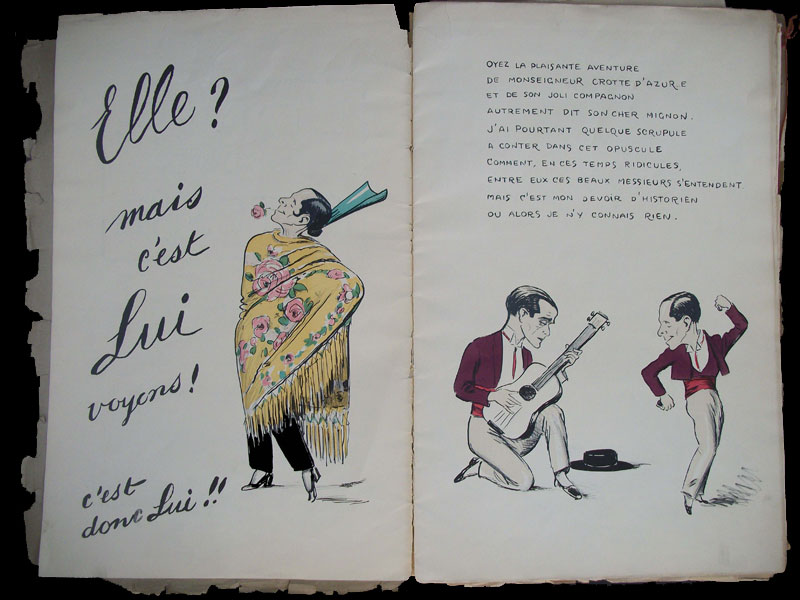 Elle?
mais
c'est
Lui
voyons!
c'est
donc Lui!!
OYEZ LA PLAISANTE AVENTURE
DE MONSEIGNEUR CROTTE D'AZUR.E
ET DE SON JOLI COMPAGNON
AUTREMENT DIT SON CHER MIGNON.
J'AI POURTANT QUELQUE SCRUPULE
A CONTER DANS CET OPUSCULE
COMMENT, EN CES TEMPS RIDICULES,
ENTRE EUX CES BEAUX MESSIEURS S'ENTENDENT.
MAIS C'EST MON DEVOIR D'HISTORIEN
OU ALORS JE N'Y CONNAIS RIEN.